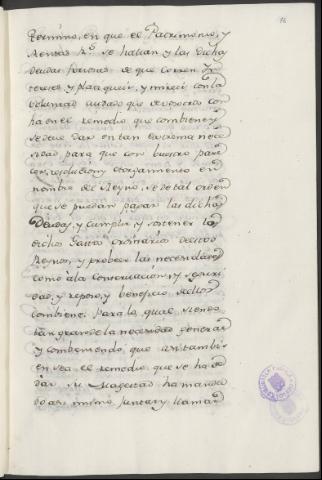 termino, en que el Patrimonio, y
Rentas R.s se hallan y las dichas
deudas forzosas de que corren Yn
tereses, y para que vi, y mirei con la
voluntad cuidado que de vosotros con
fia en el remedio que combiene y
se deve dar en tan extrema nece
sidad para que con buestro pare
cer, resolucion y otorgamiento en
nombre del Reyno, se de tal orden
que se puedan pagar las dichas
Deudas, y cumplir, y sostener los
dichos Gastos ordinarios de estos
Reynos, y probeer las necesidades
como á la Conservacion, y seguri
dad, y reposo, y beneficio de ellos
combiene: para lo qual siendo
tan grande la necesidad general
y combeniendo que asi tambien
en sea el remedio que se ha de
dar su Magestad ha mandado
asi mismo juntar y llamar